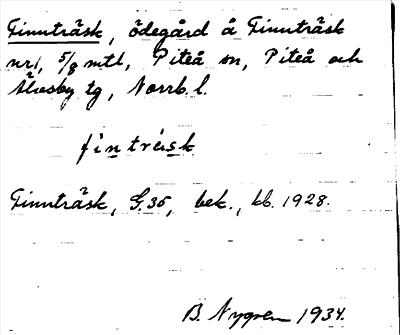 Finnträsk, ödegård å Finnträsk
nr 1, 5/8 mtl, Piteå sn, Piteå och
Älvsby tg, Norrb. l.
fintrèsk
Finnträsk, G.35, bek., kb. 1928.
B. Nygren 1934.